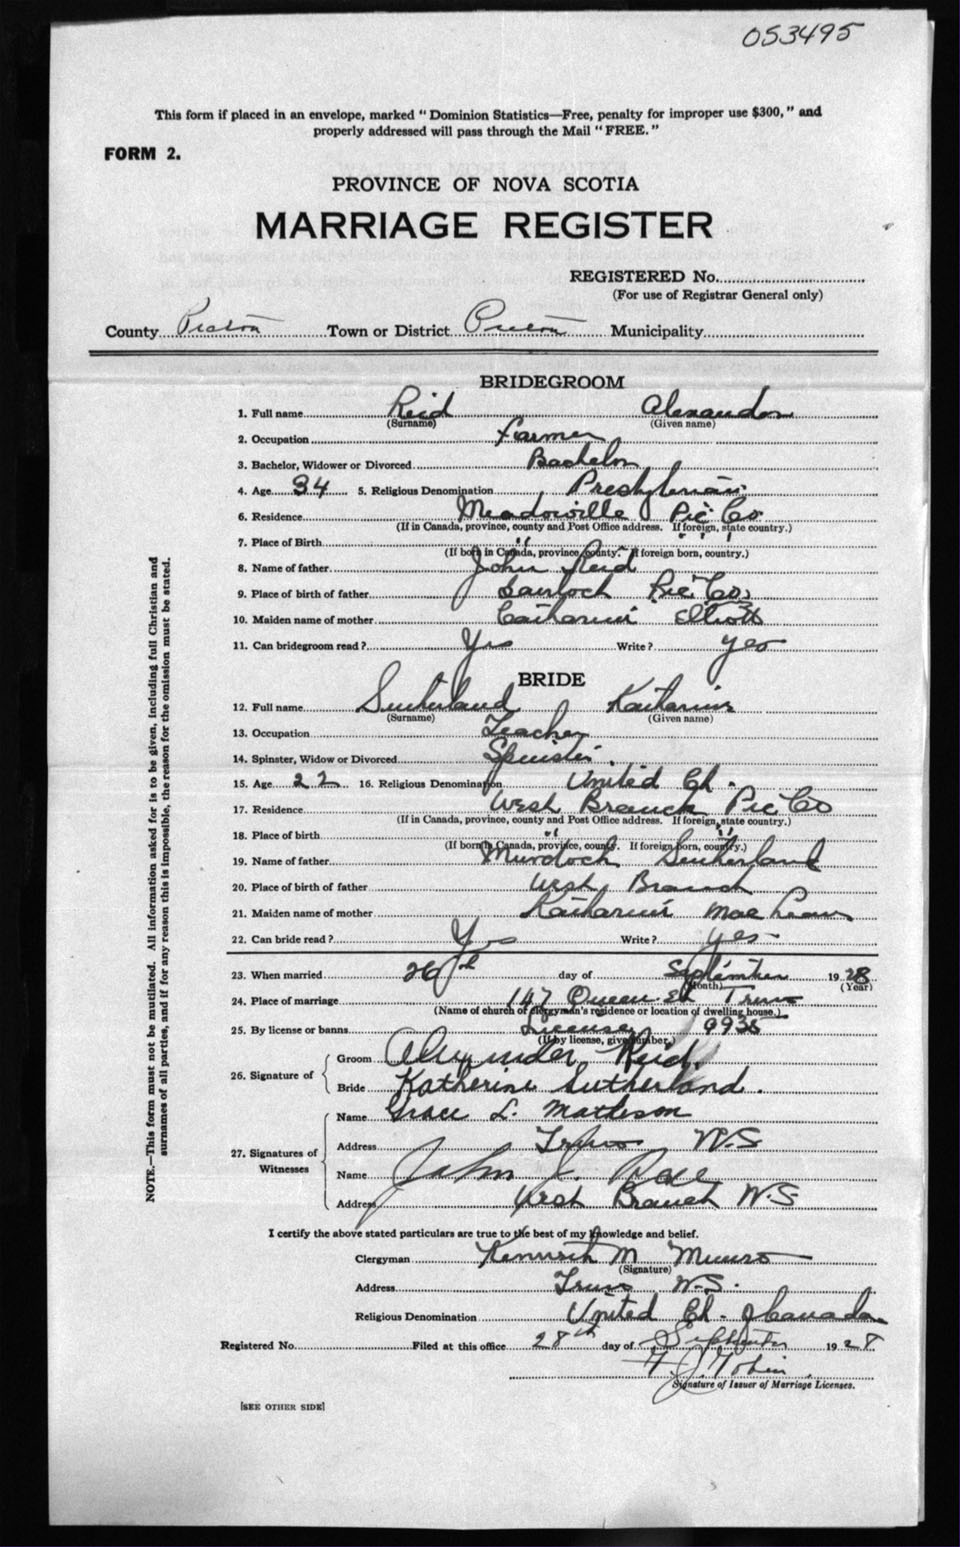 053495
This form if placed in an envelope, marked "Dominion Statistics—Free, penalty for improper use $300," and
properly addressed will pass through the Mail "FREE."
FORM 2.
PROVINCE OF NOVA SCOTIA
MARRIAGE REGISTER
REGISTERED No.
(For use of Registrar General only)
County Pictou Town or District Pictou Municipality
BRIDEGROOM
1. Full name Reid Alexander
(Surname) (Given name)
2. Occupation Farmer
3. Bachelor, Widower or Divorced Bachelor
4. Age 34 5. Religious Denomination Presbyterian
6. Residence Meadowville Pic Co
(If in Canada, province, county and Post Office address. If foreign, state country.)
7. Place of Birth " " " "
(If born in Canada, province, county. If foreign born, country.)
8. Name of father John Reid
9. Place of birth of father Gairloch Pic Co.
10. Maiden name of mother Catharine Elliott
11. Can bridegroom read? Yes Write? yes
BRIDE
12. Full name Sutherland Katharine
(Surname) (Given name)
13. Occupation Teacher
14. Spinster, Widow or Divorced Spinster
15. Age 22 16. Religious Denomination United Ch.
17. Residence West Branch Pic Co
(If in Canada, province, county and Post Office address. If foreign, state country.)
18. Place of birth " "
(If born in Canada, province, county. If foreign born, country.)
19. Name of father Murdoch Sutherland
20. Place of birth of father West Branch
21. Maiden name of mother Katharine MacLean
22. Can bride read? Yes Write? yes
23. When married 26th day of September 1928
(Month) (Year)
24. Place of marriage 147 Queen St Truro
(Name of church or clergyman's residence or location of dwelling house.)
25. By license or banns License 9935
(If by license, give number.)
26. Signature of Groom Alexander Reid.
Bride Katherine Sutherland.
27. Signatures of Witnesses Name Grace L. Matheson
Address Truro N.S
Name John J. Rae
Address West Branch N.S.
I certify the above stated particulars are true to the best of my knowledge and belief.
Clergyman Kenneth M Munro
(Signature)
Address Truro N.S.
Religious Denomination United Ch. of Canada
Registered No. Filed at this office 28th day of September 1928
Signature of Issuer of Marriage Licenses.
[SEE OTHER SIDE]
NOTE.—This form must not be mutilated. All information asked for is to be given, including full Christian and
surnames of all parties, and if for any reason this is impossible, the reason for the omission must be stated.